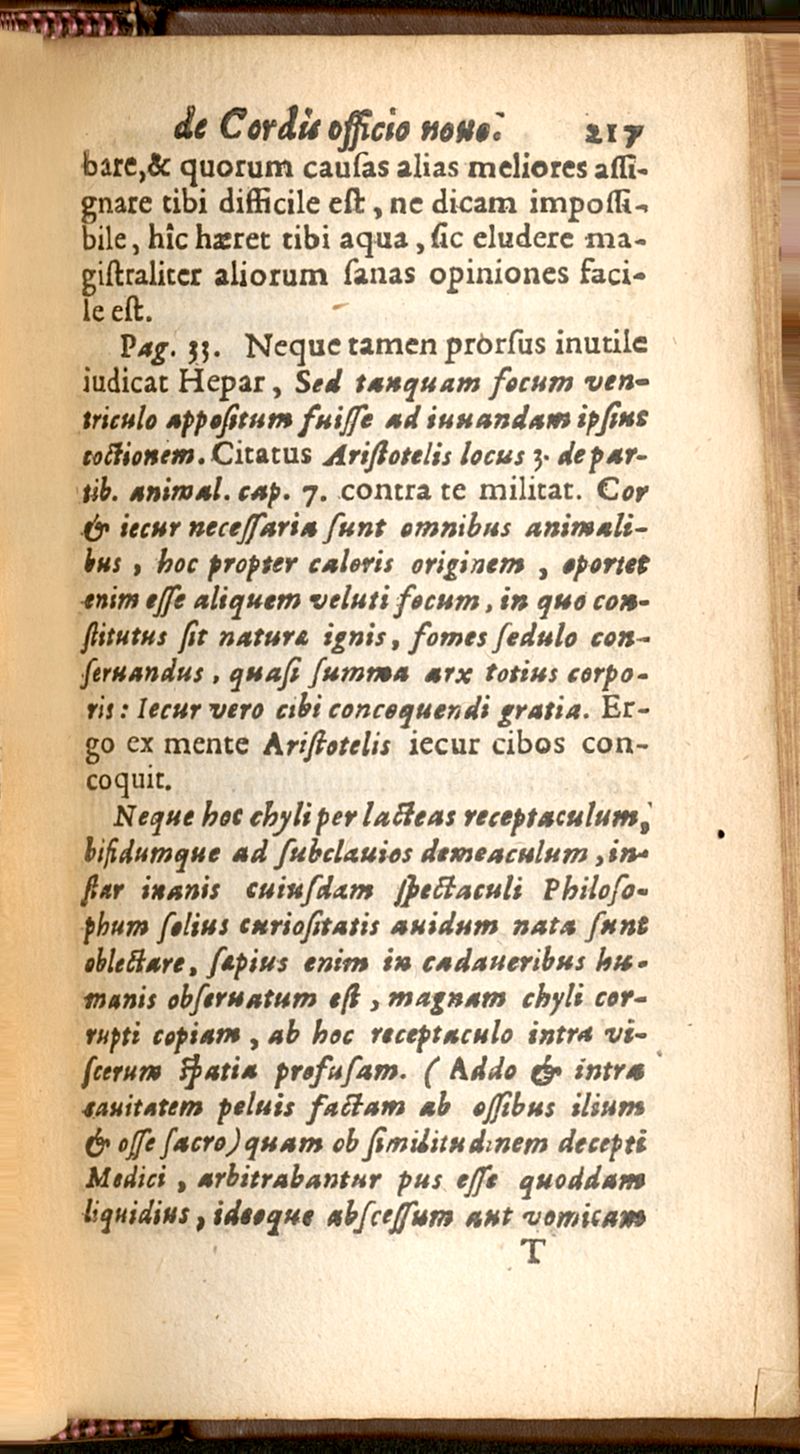 de Cordis officio nouo. 217
bare,& quorum causas alias meliores assi-
gnare tibi difficile est, ne dicam impossi-
bile, hîc hæret tibi aqua, sic eludere ma-
gistraliter aliorum sanas opiniones faci-
le est.
Pag. 33. Neque tamen prorsus inutile
iudicat Hepar, Sed tanquam focum ven-
triculo appositum fuisse ad iuuandam ipsius
coctionem. Citatus Aristotelis locus 3. de par-
tib. animal. cap. 7. contra te militat. Cor
& iecur necessaria sunt omnibus animali-
bus, hoc propter caloris originem, oportet
enim esse aliquem veluti focum, in quo con-
stitutus sit natura ignis, fomes sedulo con-
seruandus, quasi summa arx totius corpo-
ris: Iecur vero cibi concoquendi gratia. Er-
go ex mente Aristotelis iecur cibos con-
coquit.
Neque hoc chyli per lacteas receptaculum,
bifidumque ad subclauios demeaculum, in-
star inanis cuiusdam spectaculi Philoso-
phum solius curiositatis auidum nata sunt
oblectare, sæpius enim in cadaueribus hu-
manis obseruatum est, magnam chyli cor-
rupti copiam, ab hoc receptaculo intra vi-
scerum spatia profusam. (Addo & intra
cauitatem peluis factam ab ossibus ilium
& osse sacro) quam ob similitudinem decepti
Medici, arbitrabantur pus esse quoddam
liquidius, ideoque abscessum aut vomicam
T